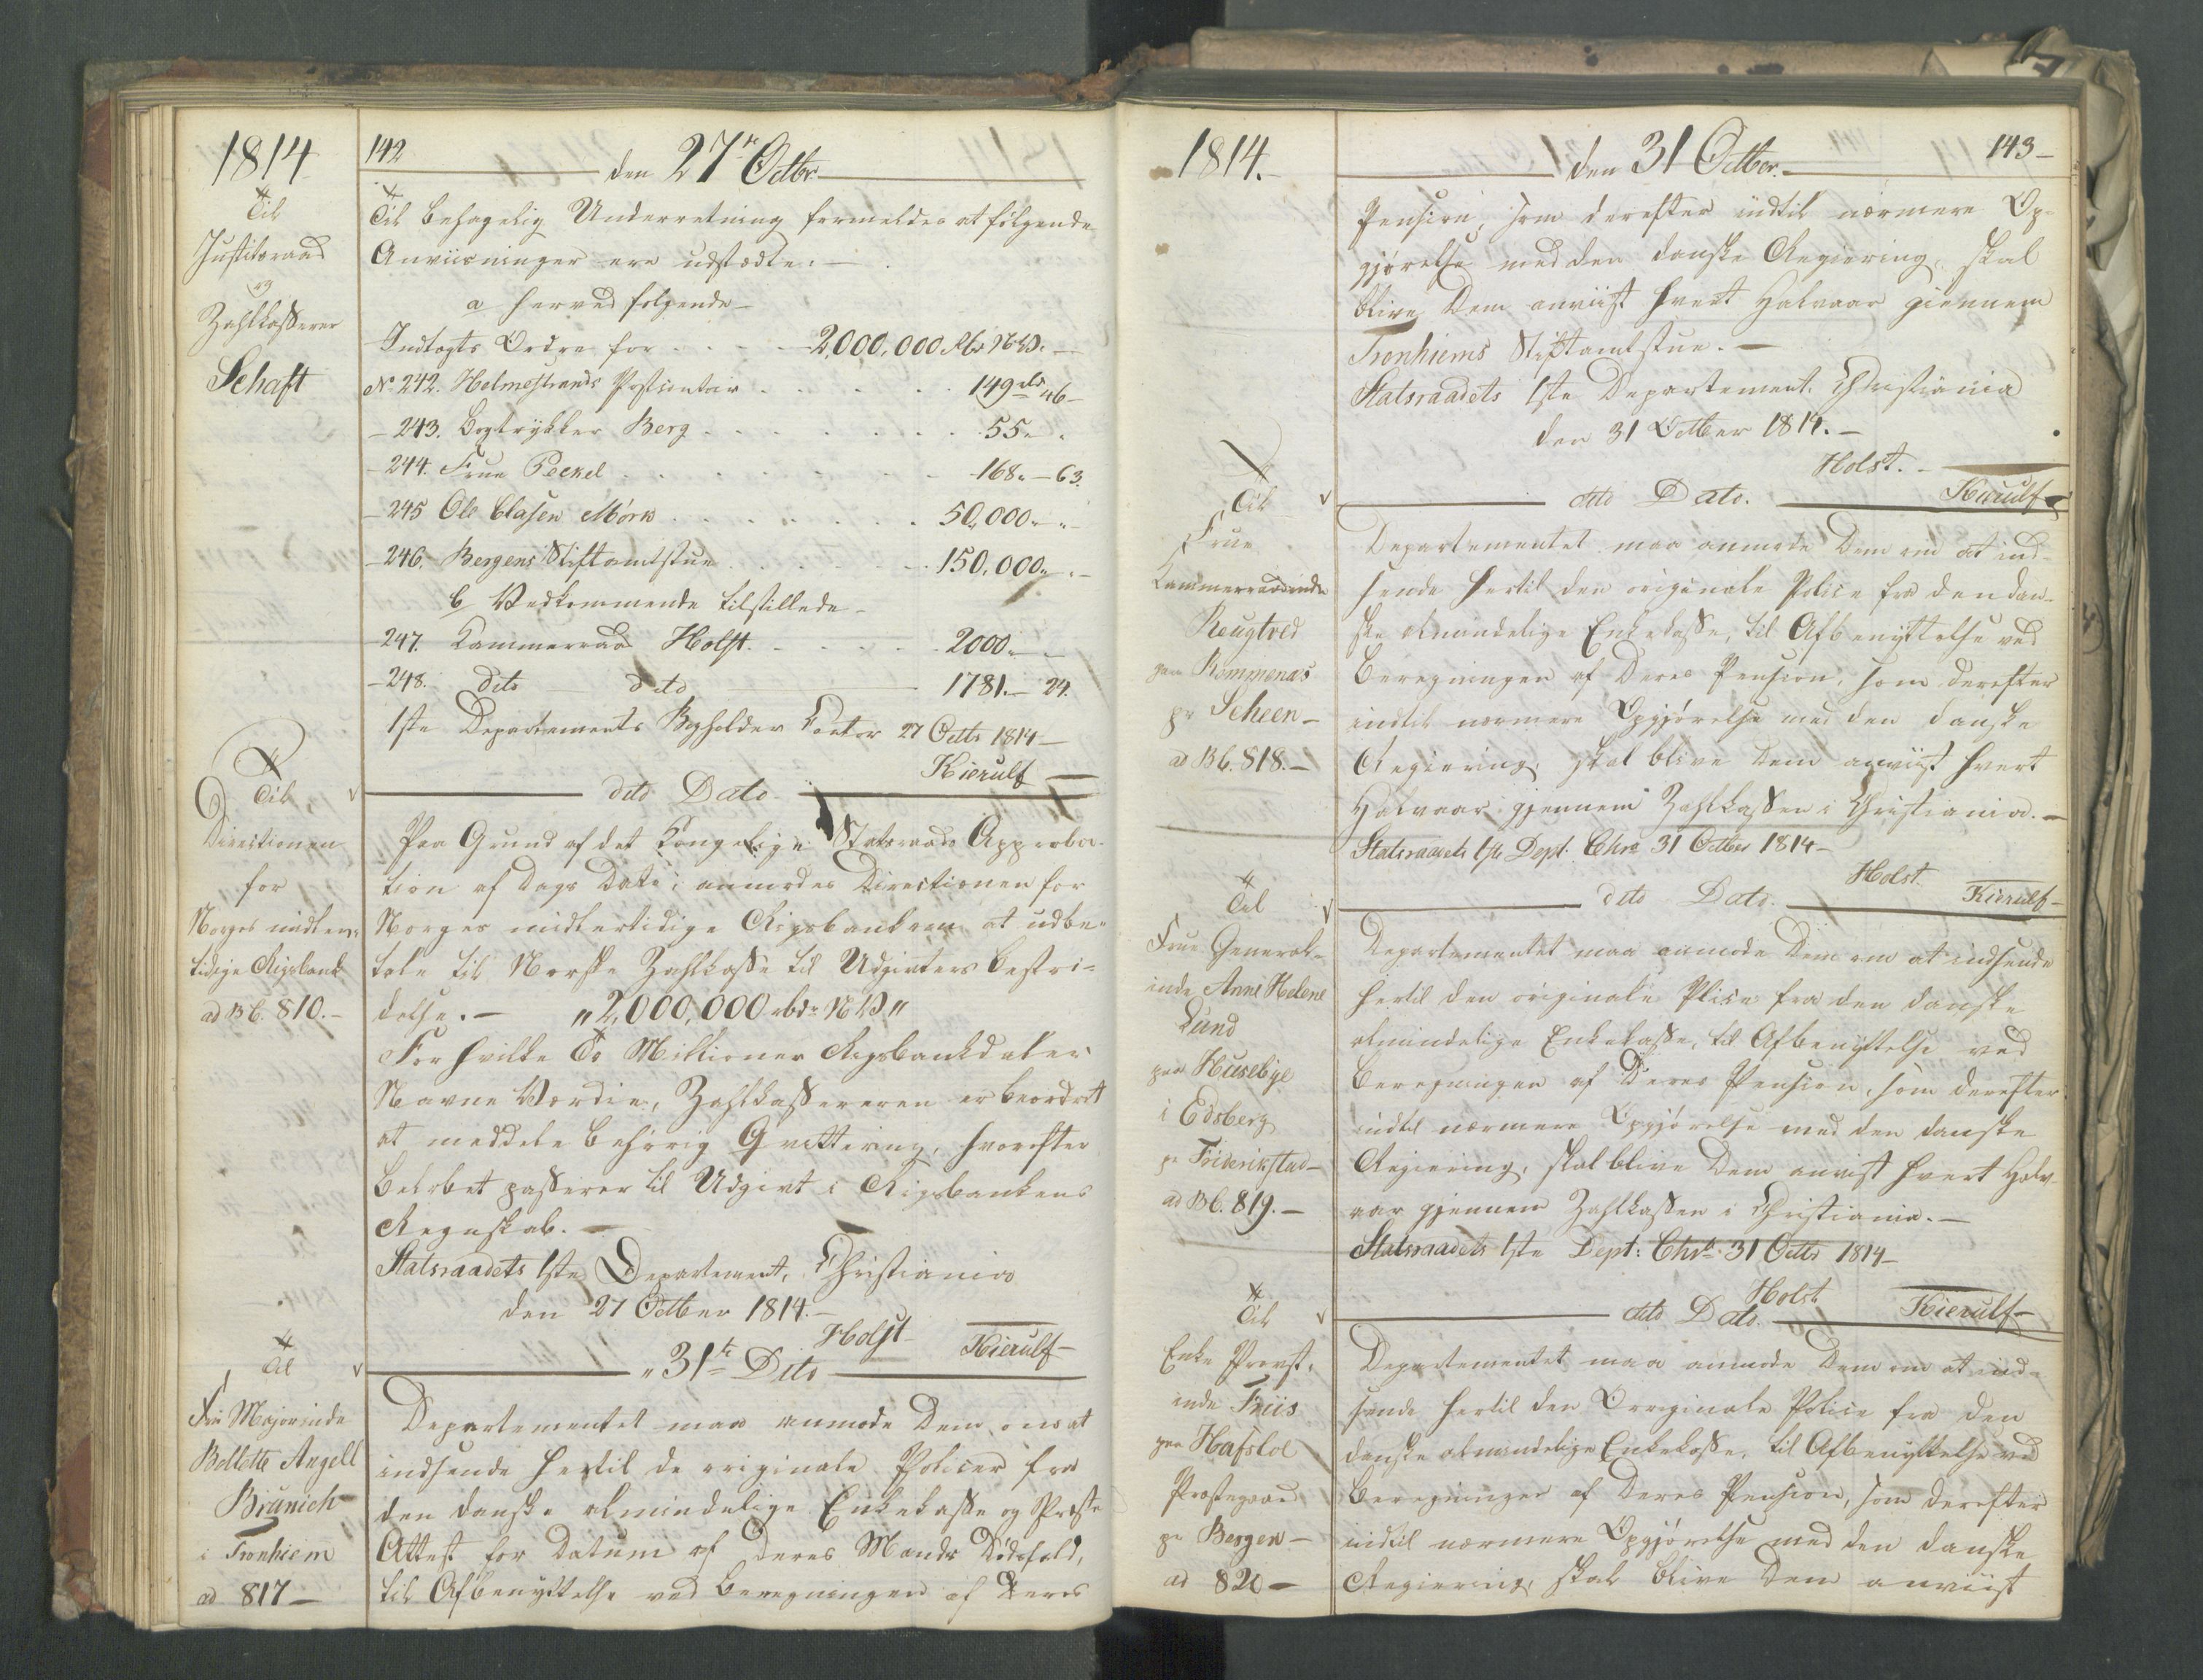 1814
142
den 27de Octbr
Til
Justitsraad
og
Zahlkasserer
Schaft
Til behagelig Underretning formeldes at følgende
Anviisninger ere udstædte. —
a herved følgende —
Indtægts Ordre for - - - 2,000,000 Rbd NV. —
No 242. Holmestrands Postcontoir . . . . 149 rd 46 —
— 243. Bogtrykker Berg . . . . . . 55 " "
— 244. Frue Peckel . . . . . . — 168 " — 63.
— 245 Ole Clasen Mørk . . . . . . 50,000 " "
— 246. Bergens Stiftamtstue . . . . . 150,000 " —
b Vedkommende tilstillede —
247. Kammerraad Holst . . . . . 2000 " —
— 248. dito dito — 1781. — 24.
1ste Departements Bogholder Contor 27 Octb 1814 —
Kierulf —
dito Dato
Til
Directionen
for
Norges midler-
tidige Rigsbank
ad B b. 810. —
Paa Grund af det Kongelige Statsraads Approba-
tion af Dags Dato, anmodes Directionen for
Norges midlertidige Rigsbank om at udbe-
tale til Norske Zahlkasse til Udgivters bestri-
delse. — "2,000,000 rbdr NV"
For hvilke To Millioner Rigsbankdaler
Navne Værdie, Zahlkassereren er beordret
at meddele behørig Qvittering, hvorefter
Beløbet passerer til Udgivt i Rigsbankens
Regnskab. —
Statsraadets 1ste Departement, Christiania
den 27 Octber 1814. —
Holst
Kierulf —
" 31te Dito
Til
Fru Majorinde
Bollette Angell
Brünich
i Tronhiem
ad 817 —
Departementet maa anmode Dem, om at
indsende hertil de originale Policer fra
den danske almindelige Enkekasse og Præste
Attest for Datum af Deres Mands Dødsfald,
til Afbenyttelse ved Beregningen af Deres
1814. —
den 31 Octber. —
143 —
Pension, som derefter indtil nærmere Op-
gjørelse med den danske Regiering, skal
blive Dem anviist hvert Halvaar giennem
Tronhiems Stiftamtstue. —
Statsraadets 1ste Departement. Christiania
den 31 Octber 1814. —
Holst. —
Kierulf
dito Dato.
Til
Frue
Kammerraadinde
Reugtved
paa Rommenæs
pr Scheen —
ad B b. 818. —
Departementet maa anmode Dem om at ind-
sende hertil den originale Police fra den dan-
ske almindelige Enkekasse, til Afbenyttelse ved
Beregningen af Deres Pension, som derefter
indtil nærmere Opgjørelse med den danske
Regiering, skal blive Dem anviist hvert
Halvaar gjennem Zahlkassen i Christiania. —
Statsraadets 1ste Dept. Chra 31 Octber 1814 —
Holst.
Kierulf —
dito Dato.
Til
Frue General-
inde Anne Helene
Lund
paa Husebye
i Edsberg
pr Friderikstad —
ad B b. 819. —
Departementet maa anmode Dem om at indsende
hertil den originale Plise fra den danske
almindelige Enkekasse, til Afbenyttelse ved
Beregningen af Deres Pension, som derefter
indtil nærmere Opgjørelse med den danske
Regiering, skal blive Dem anvist hvert Halv-
aar gjennem Zahlkassen i Christiania. —
Statsraadets 1ste Dept: Chra 31 Octbr 1814 —
Holst
Kierulf —
dito Dato.
Til
Enke Provst-
inde Friis
paa Hafsloe
Præstegaard
pr Bergen —
ad 820 —
Departementet maa anmode Dem om at ind-
sende hertil den Orriginale Police fra den
danske almindelige Enkekasse, til Afbenyttelse ved
Beregningen af Deres Pension, som derefter
indtil nærmere Opgjørelse med den danske
Regiering, skal blive Dem anviist